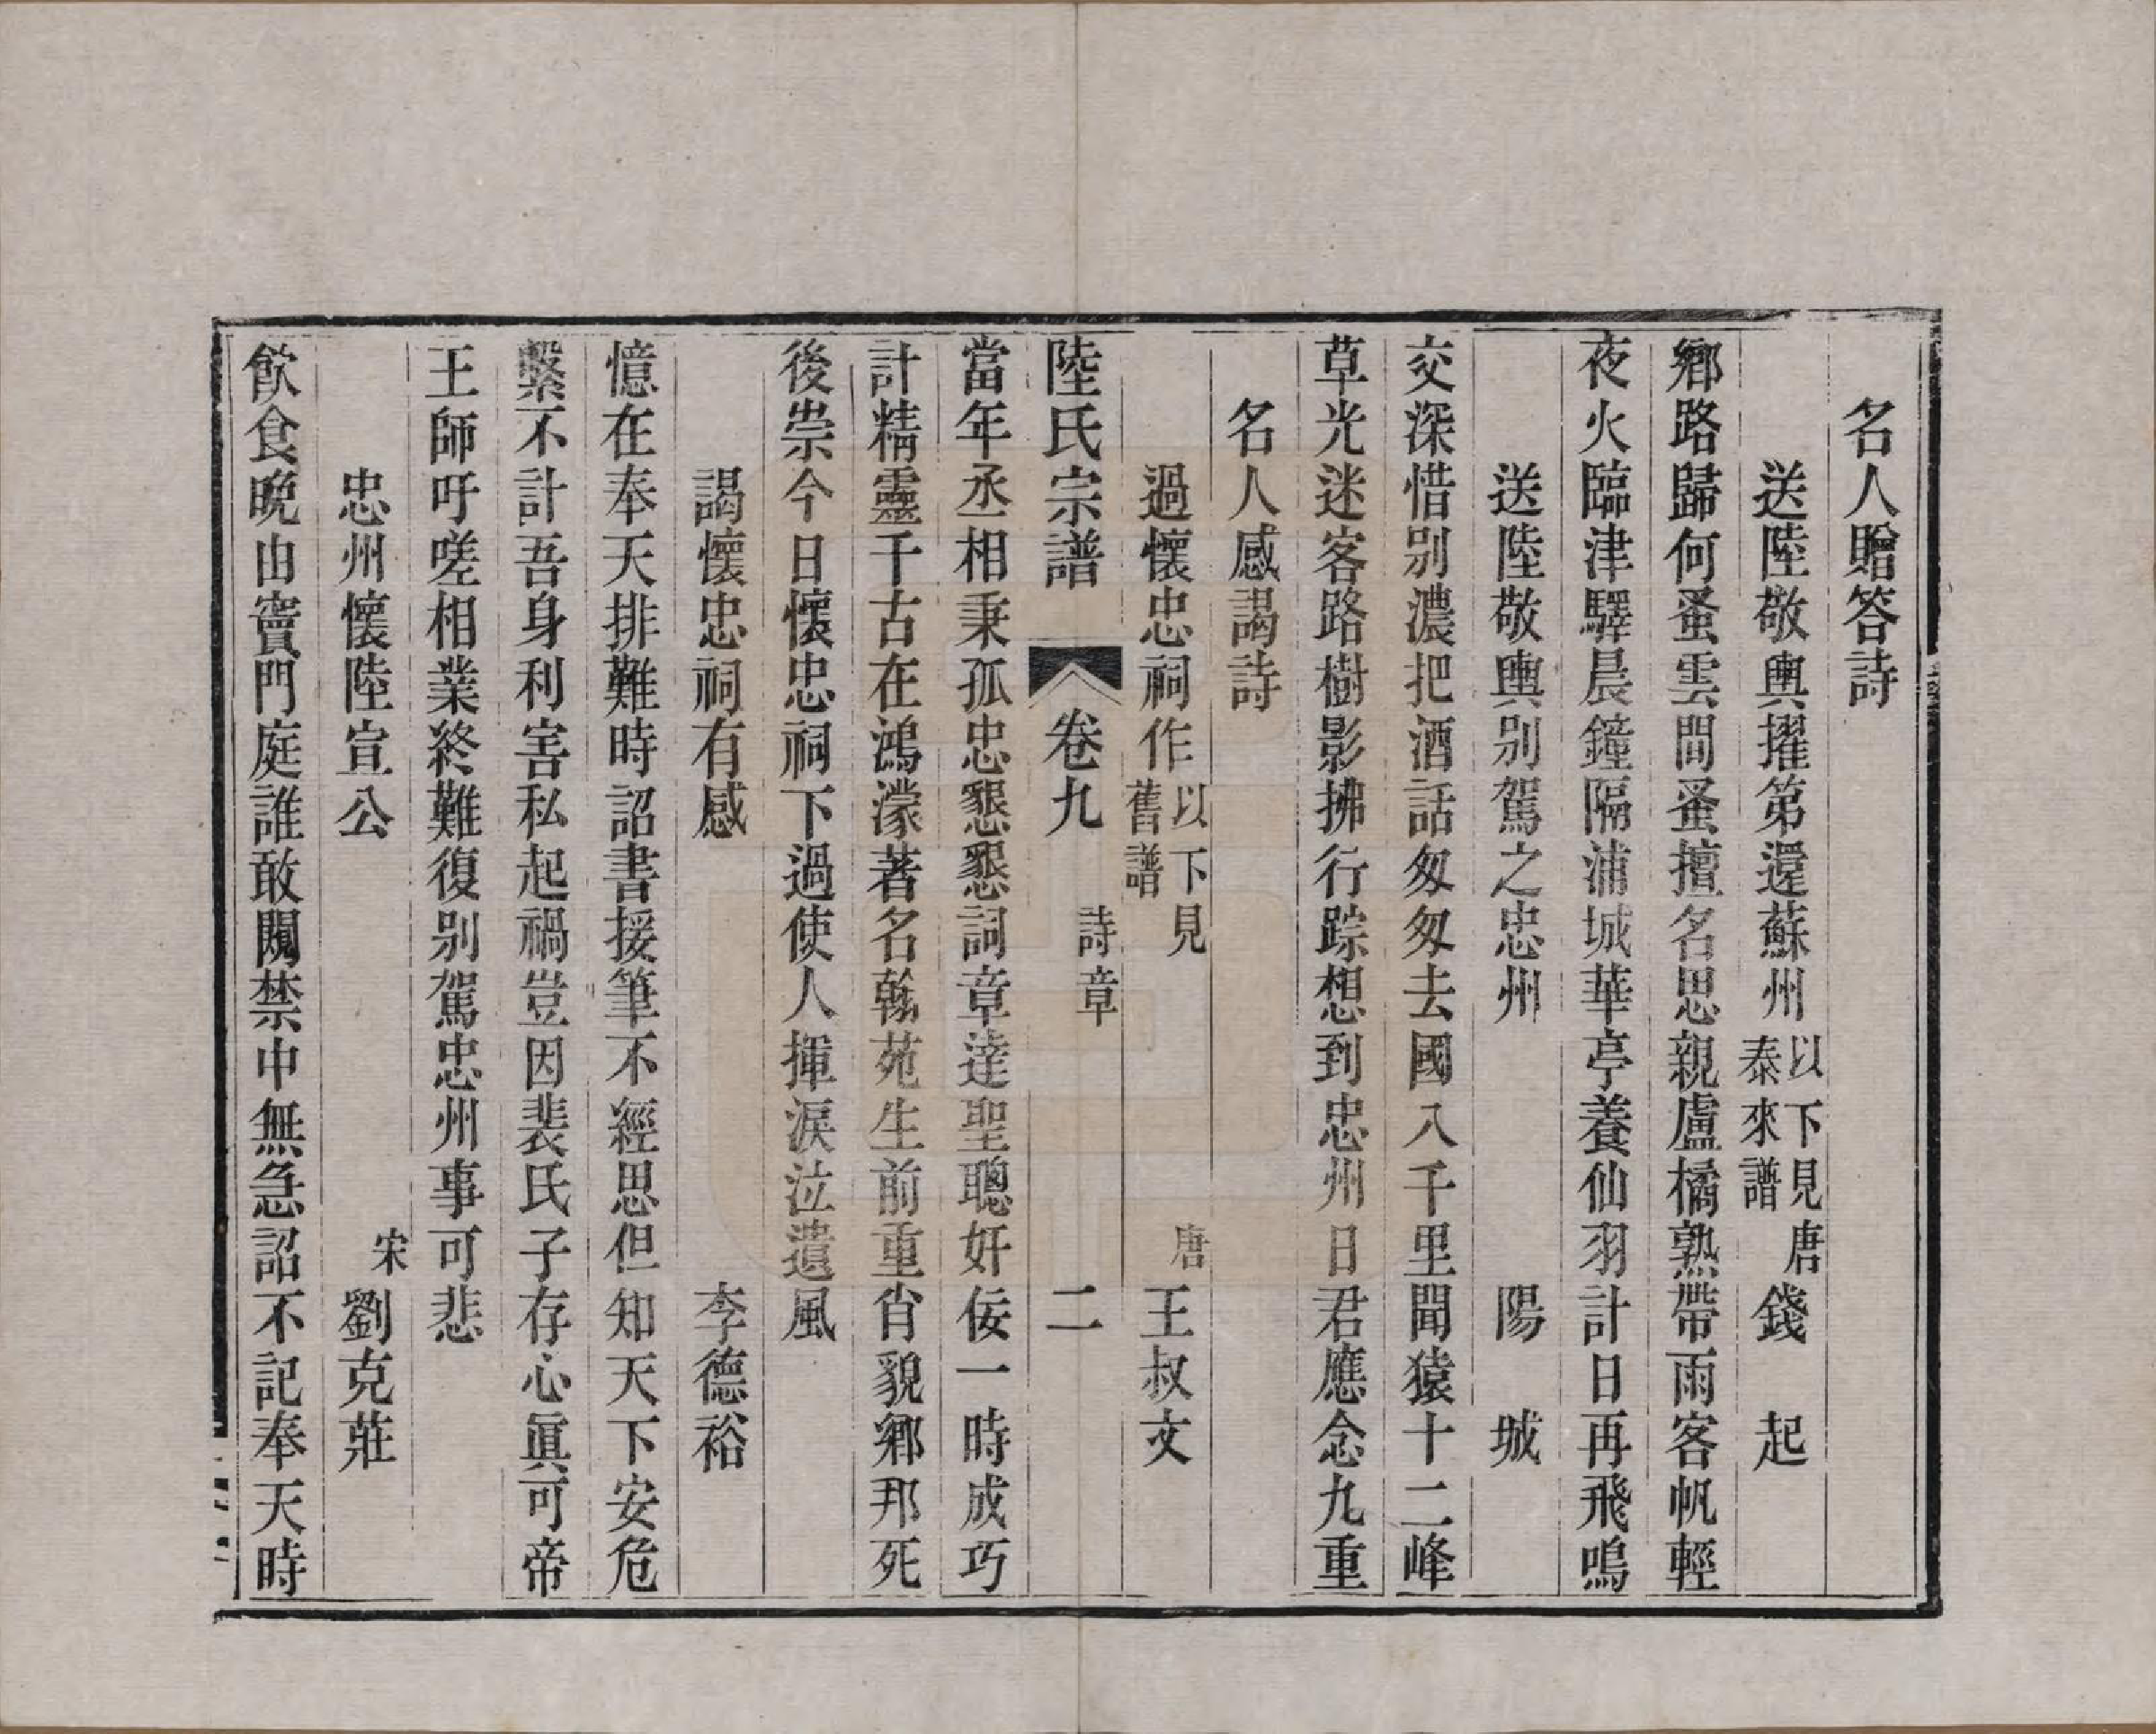 名人贈答詩
送陸敬輿擢第還蘇州 以下見泰來譜 唐 錢起
鄉路歸何蚤雲間蚤擅名思親盧橘熟帶雨客帆輕
夜火臨津驛晨鐘隔浦城華亭養仙羽計日再飛鳴
送陸敬輿別駕之忠州 陽城
交深惜別濃把酒話匆匆去國八千里聞猿十二峰
草光迷客路樹影拂行踪想到忠州日君應念九重
名人感謁詩
過懷忠祠作 以下見舊譜 唐 王叔文
陸氏宗譜 卷九 詩章 二
當年丞相秉孤忠懇懇詞章達聖聰奸佞一時成巧
計精靈千古在鴻濛著名翰苑生前重肖貌鄉邦死
後崇今日懷忠祠下過使人揮淚泣遺風
謁懷忠祠有感 李德裕
憶在奉天排難時詔書援筆不經思但知天下安危
繫不計吾身利害私起禍豈因裴氏子存心眞可帝
王師吁嗟相業終難復別駕忠州事可悲
忠州懷陸宣公 宋 劉克莊
飮食晚由竇門庭誰敢闚禁中無急詔不記奉天時